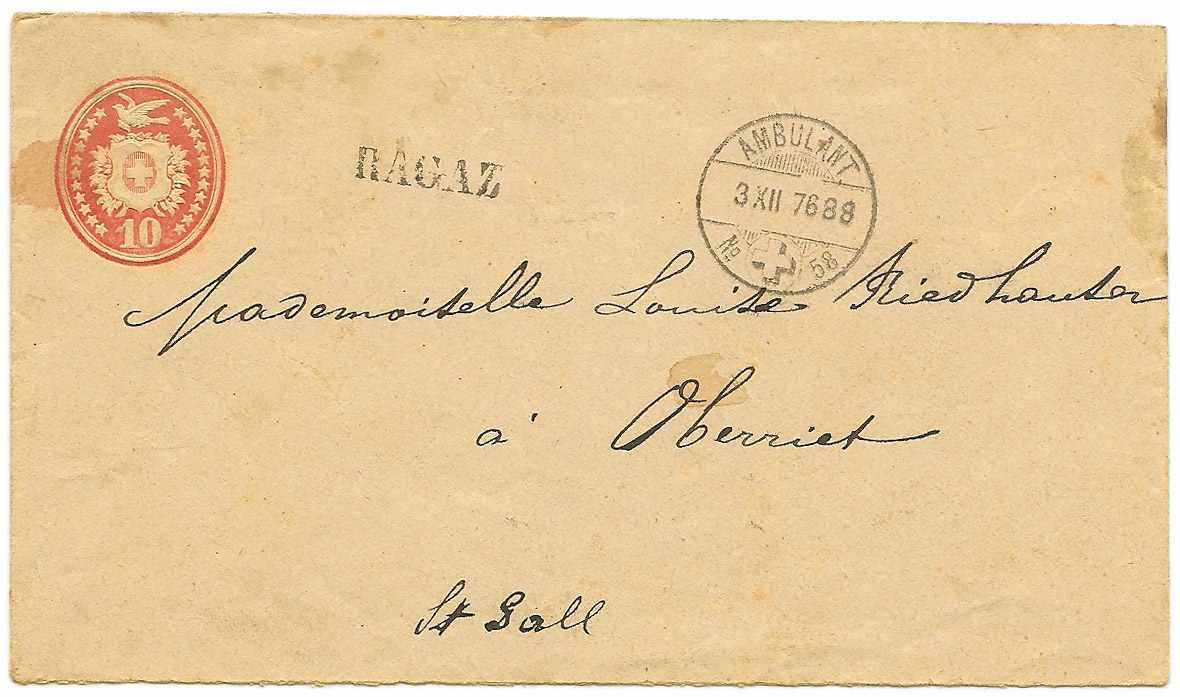 10
RAGAZ
AMBULANT
3 XII 7688
No 58
Mademoiselle Louise Riedhauser
à Oberriet
St Gall